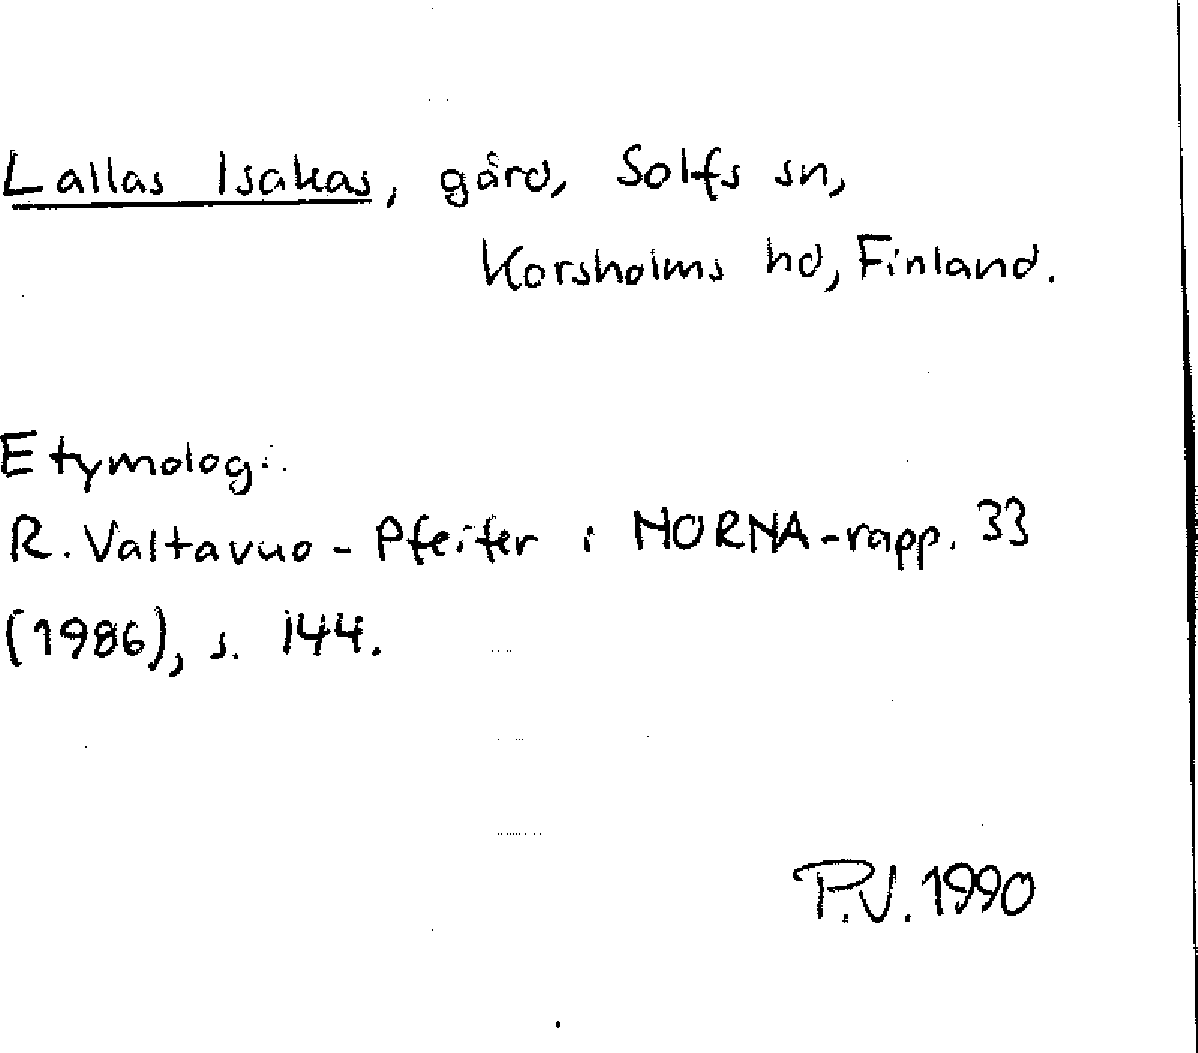 Lallas Isakas, gård, Solfs sn,
Korsholms hd, Finland.
Etymologi:
R. Valtavuo-Pfeifer i NORNA-rapp. 33
(1986), s. 144.
P.V. 1990